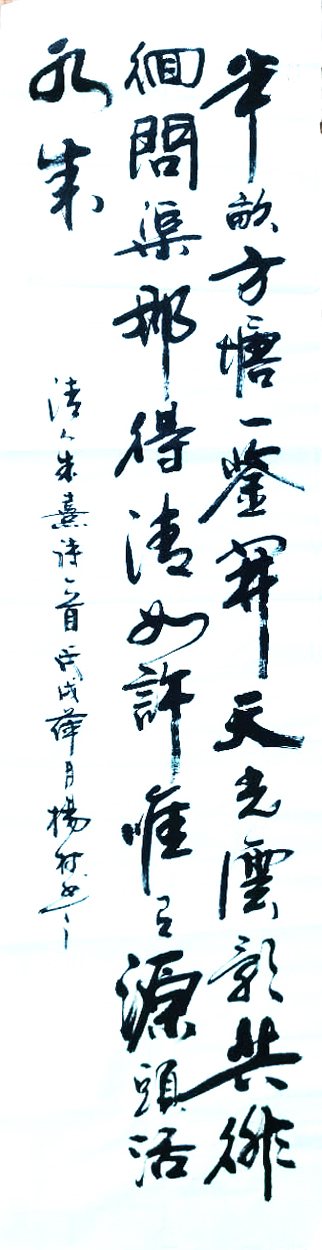 半畝方塘一鑒開天光雲影共徘
徊問渠那得清如許唯有源頭活
水来
清人朱熹詩一首戌月楊